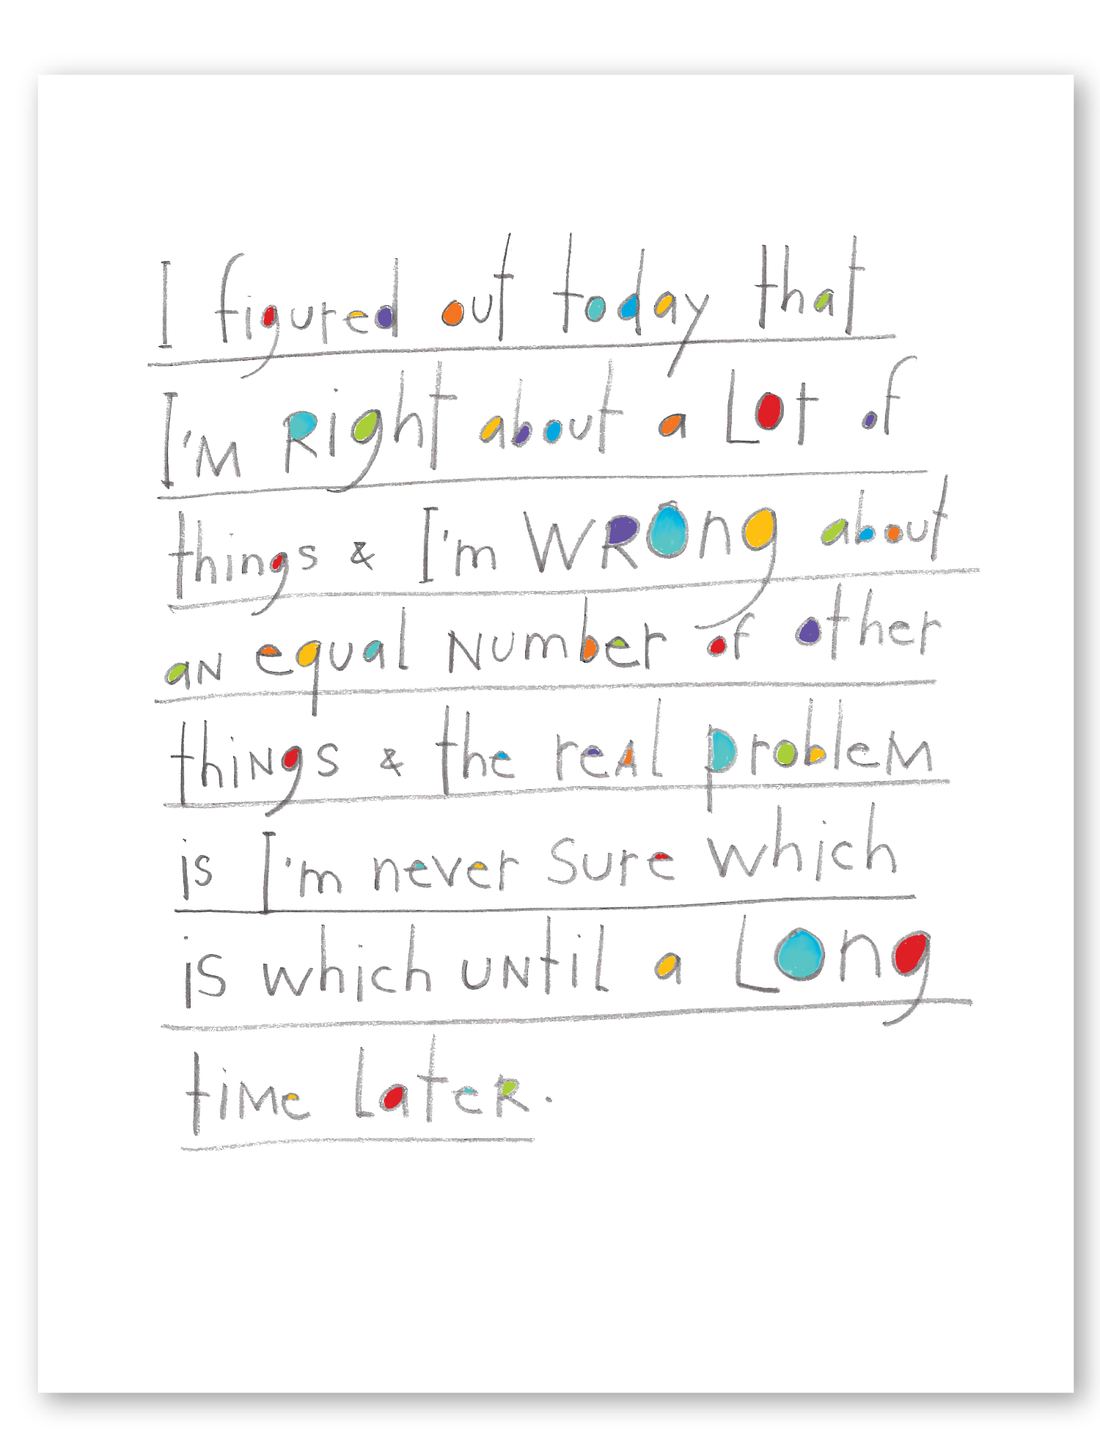 I figured out today that
I'M Right about a Lot of
things & I'm WRONg about
aN equal Number of other
thiNgs & the reAl probleM
is I'm never Sure which
iS which UNtil a LOng
tiMe LateR.